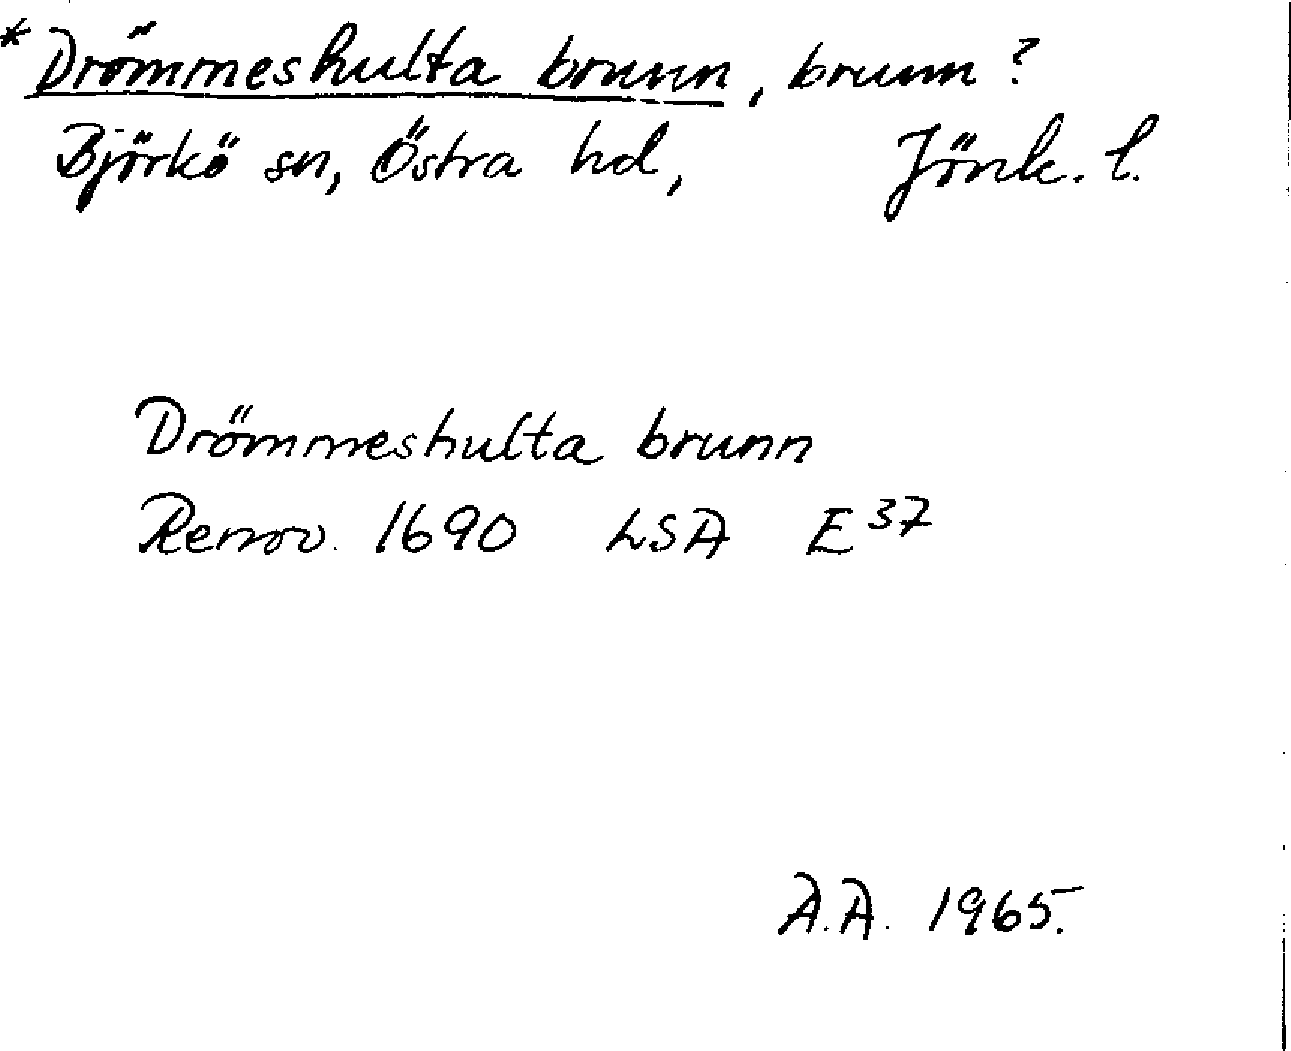 *Drömmeshulta brunn, brunn?
Björkö sn, Östra hd, Jönk. l.
Drömmeshulta brunn
Renov. 1690 LSA E 37
A.A. 1965.